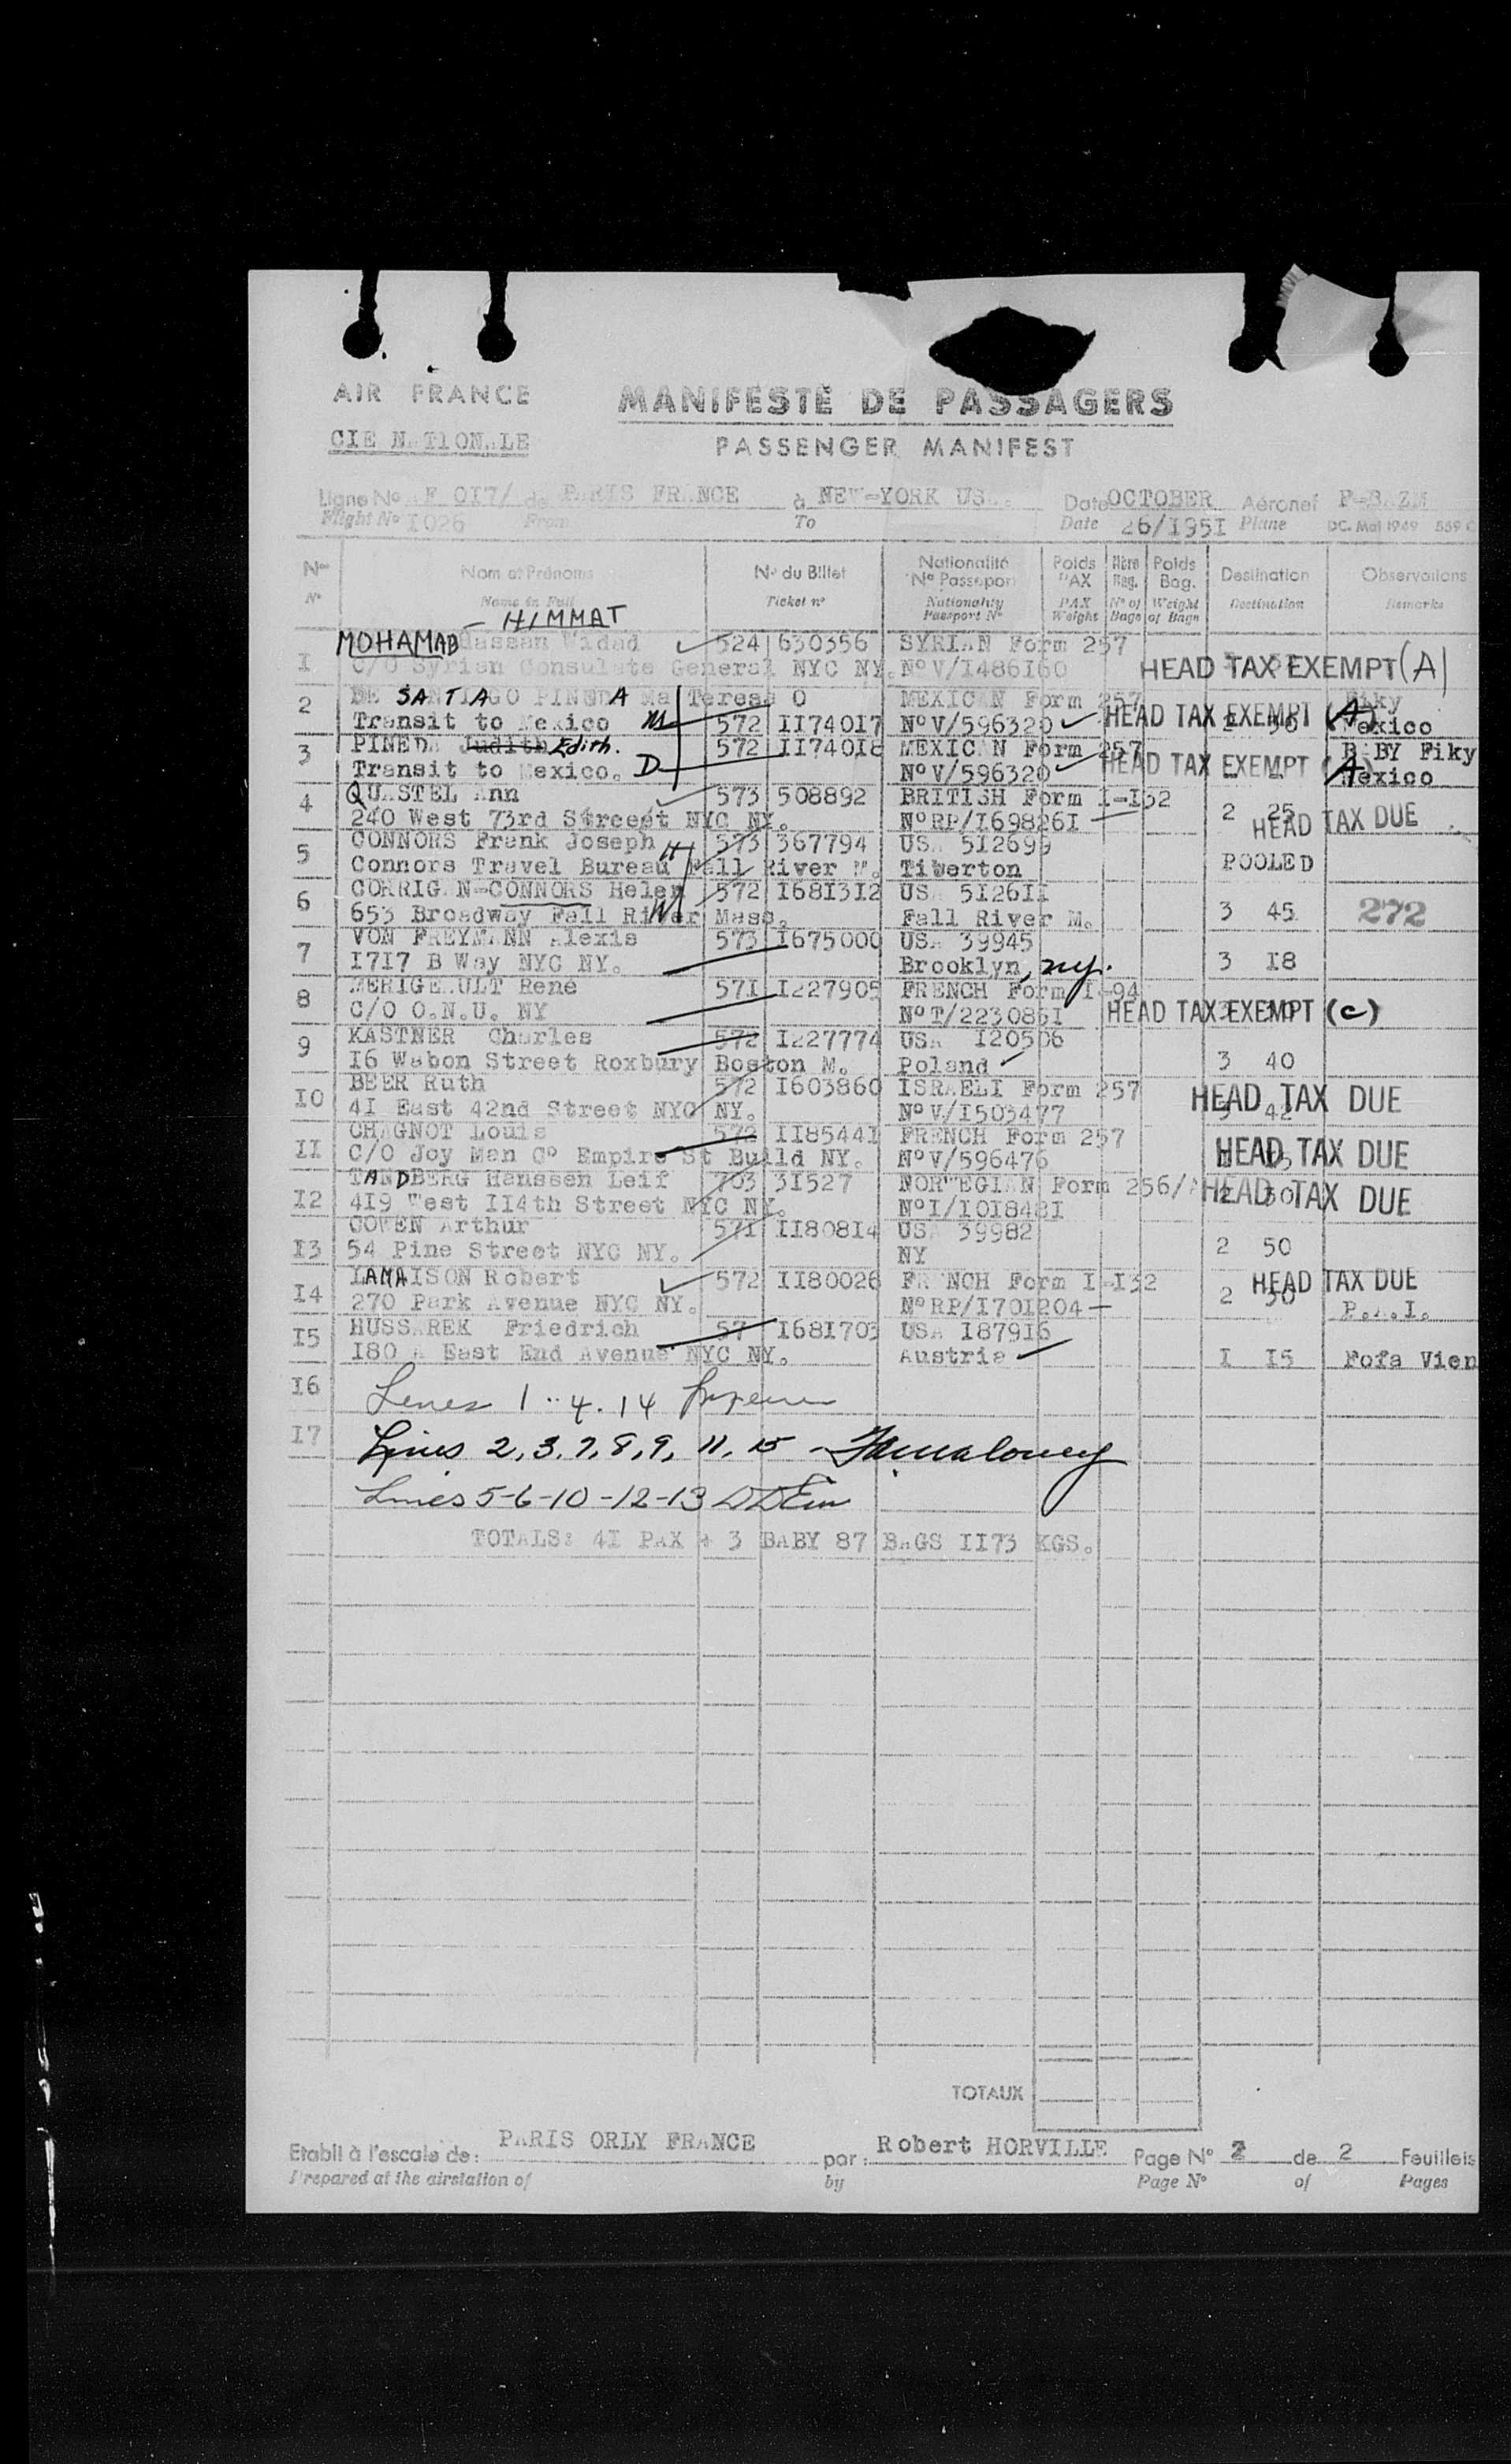 AIR FRANCE
MANIFESTE DE PASSAGERS
CIE NATIONALE
PASSENGER MANIFEST
Ligne No AF 017/ de PARIS FRANCE à NEW-YORK USA. Date OCTOBER Aéronef F-BAZM
Flight No 1026 From To Date 26/1951 Plane DC. Maj 1949 559
Nos Nom et Prénoms No du Billet Nationalité No Passeport Poids PAX Nbre Bag. Poids Bag. Destination Observations
No Name in Full Ticket no Nationality Passport No PAX Weight No of Bags Weight of Bags Destination Remarks
- HIMMAT
MOHAMAD Hassan Widad 524 630356 SYRIAN Form 257
1 C/O Syrian Consulate General NYC NY. No V/1486160 HEAD TAX EXEMPT (A)
2 DE SANTIAGO PINEDA Ma Teresa O MEXICAN Form 257 Fiky
Transit to Mexico M 572 1174017 No V/596320 HEAD TAX EXEMPT (A) 2 Mexico
3 PINEDA Judith Edith. 572 1174018 MEXICAN Form 257 BABY Fiky
Transit to Mexico. D No V/596320 HEAD TAX EXEMPT (A) Mexico
4 QUASTEL Ann 573 508892 BRITISH Form I-132
240 West 73rd Streest NYC NY. No RP/1698261 2 25 HEAD TAX DUE
5 CONNORS Frank Joseph H 573 367794 USA 512699
Connors Travel Bureau Fall River M. Tiverton POOLED
6 CORRIGAN-CONNORS Helen 572 1681312 USA 512611
653 Broadway Fall River W Mass. Fall River M. 3 45 272
7 VON FREYMANN Alexis 573 1675000 USA 39945
1717 B Way NYC NY. Brooklyn, ny. 3 18
8 MERIGEAULT René 571 1227905 FRENCH Form I-94
C/O O.N.U. NY No T/2230851 HEAD TAX EXEMPT (c) 3
9 KASTNER Charles 572 1227774 USA 120506
16 Wabon Street Roxbury Boston M. Poland 3 40
10 BEER Ruth 572 1603860 ISRAELI Form 257
41 East 42nd Street NYC NY. No V/1503477 HEAD TAX DUE 42
11 CHAGNOT Louis 572 1185441 FRENCH Form 257
C/O Joy Man Co Empire St Build NY. No V/596476 HEAD TAX DUE
12 TANDBERG Hanssen Leif 703 31527 NORWEGIAN Form 256/
419 West 114th Street NYC NY. No I/1018481 2 50 HEAD TAX DUE
13 COWEN Arthur 571 1180814 USA 39982
54 Pine Street NYC NY. NY 2 50
14 LAMAISON Robert 572 1180026 FRENCH Form I-132 HEAD TAX DUE
270 Park Avenue NYC NY. No RP/1701204 2 50 P.A.I.
15 HUSSAREK Friedrich 57 1681703 USA 187916
180 A East End Avenue NYC NY. Austria 1 15 Fofa Vien
16 Lines 1 .. 4. 14
17 Lines 2, 3, 7, 8, 9, 11, 15
Lines 5-6-10-12-13
TOTALS: 41 PAX + 3 BABY 87 BAGS 1173 KGS.
TOTAUX
Etabli à l'escale de: PARIS ORLY FRANCE par: Robert HORVILLE Page No 2 de 2 Feuillets
Prepared at the airstation of by Page No of Pages